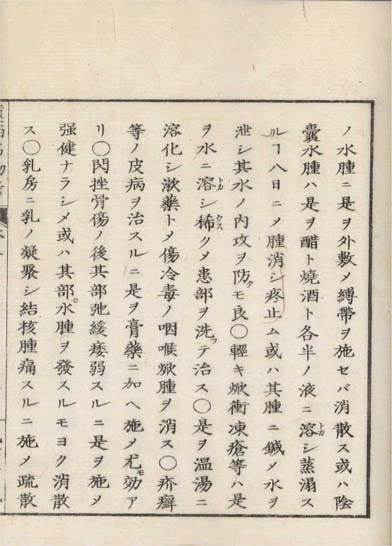 ノ水腫ニ是ヲ外敷メ縛帶ヲ施セバ消散ス或ハ陰
囊水腫ハ是ヲ醋ト燒酒ト各半ノ液ニ溶シ蒸溻ス
ルヿ八日ニメ腫消シ疼止ム或ハ其腫ニ鍼メ水ヲ
泄シ其水ノ内攻ヲ防クモ良○輕キ焮衝凍瘡等ハ是
ヲ水ニ溶シ稀クメ患部ヲ洗テ治ス○是ヲ温湯ニ
溶化シ漱藥トメ傷冷毒ノ咽喉焮腫ヲ消ス○疥癬
等ノ皮病ヲ治スルニ是ヲ膏藥ニ加ヘ施メ尤モ効ア
リ○閃挫骨傷ノ後其部弛緩痿弱スルニ是ヲ施メ
强健ナラシメ或ハ其部水腫ヲ發スルモヨク消散
ス○乳房ニ乳ノ凝聚シ結核腫痛スルニ施メ疏散